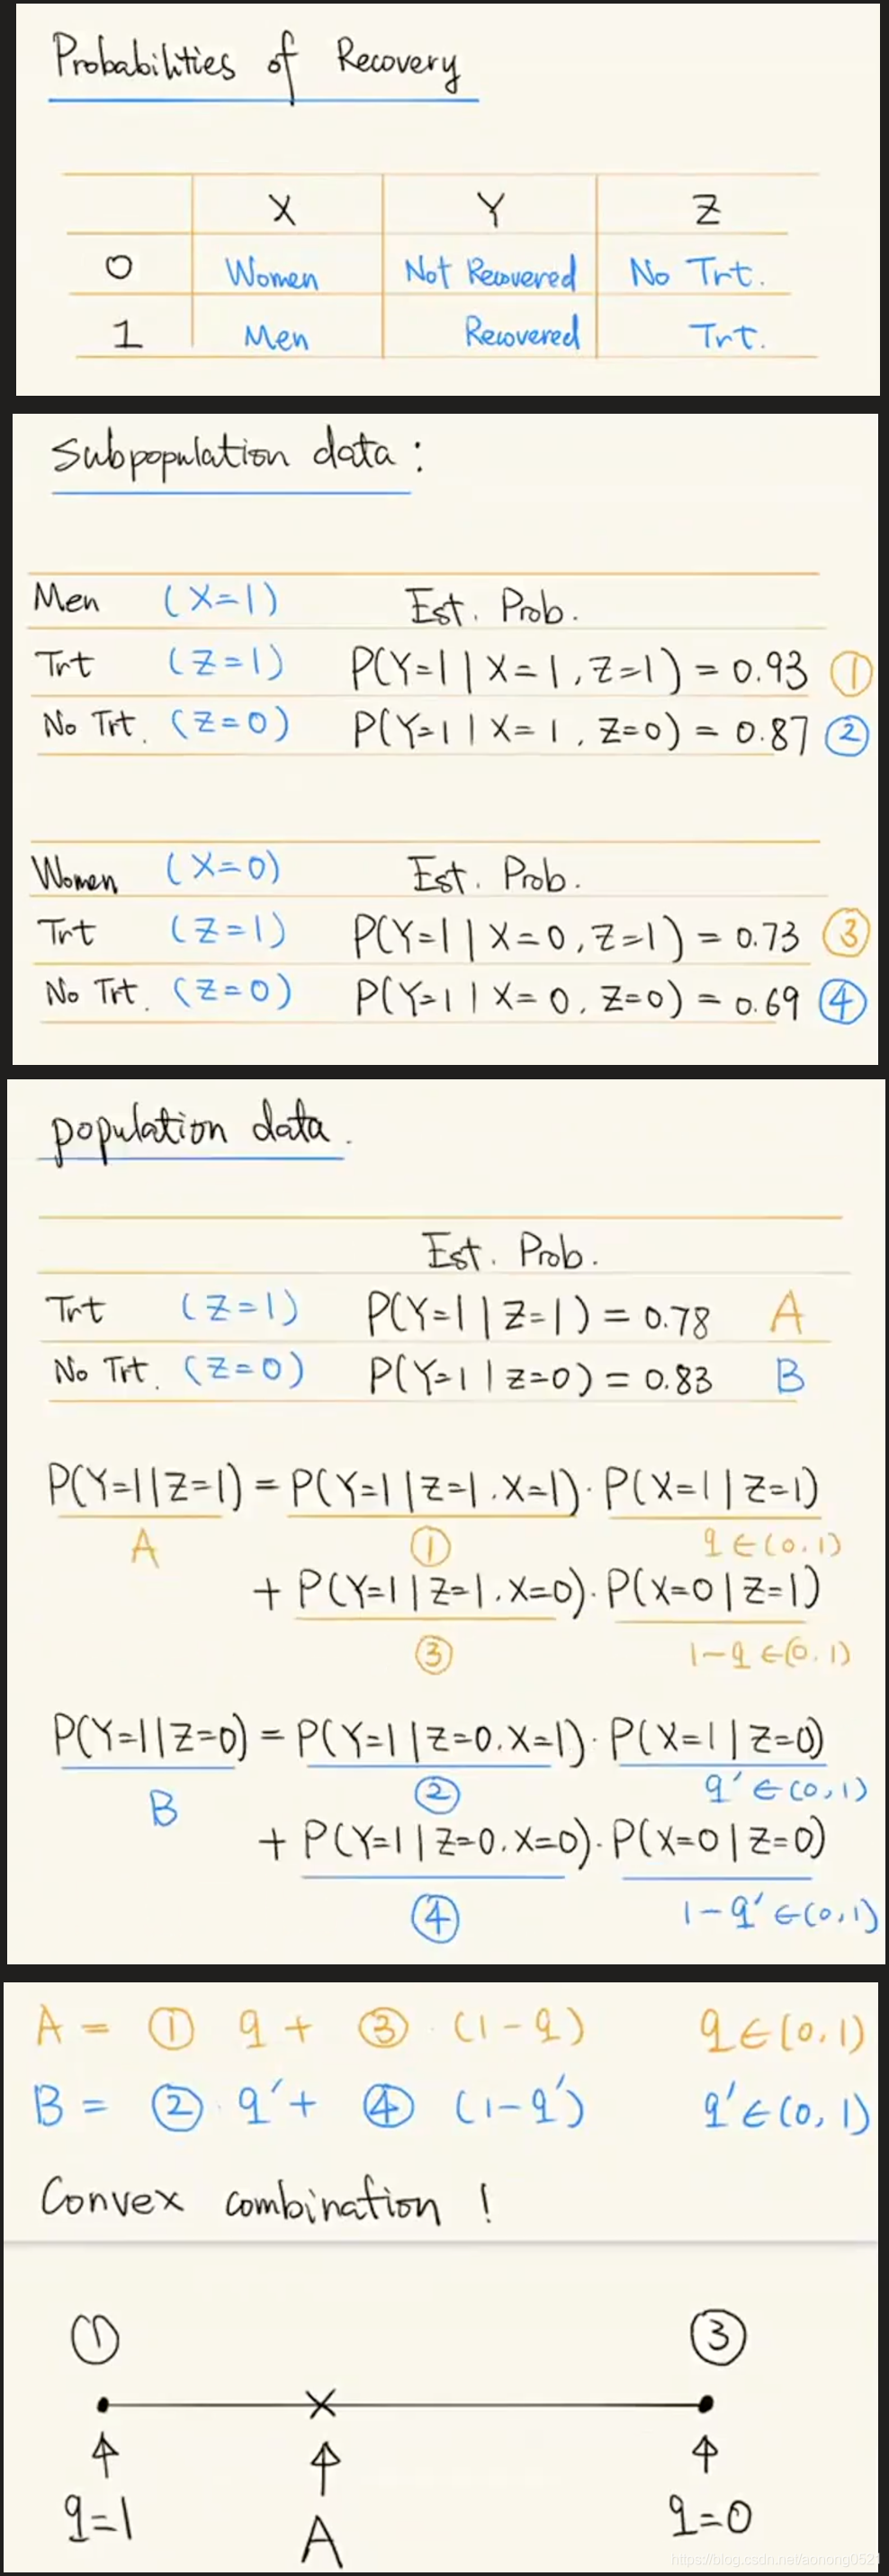 Probabilities of Recovery
X Y Z
0 Women Not Recovered No Trt.
1 Men Recovered Trt.
Subpopulation data:
Men (X=1) Est. Prob.
Trt (Z=1) P(Y=1|X=1,Z=1) = 0.93 ①
No Trt. (Z=0) P(Y=1|X=1,Z=0) = 0.87 ②
Women (X=0) Est. Prob.
Trt (Z=1) P(Y=1|X=0,Z=1) = 0.73 ③
No Trt. (Z=0) P(Y=1|X=0,Z=0) = 0.69 ④
population data.
Est. Prob.
Trt (Z=1) P(Y=1|Z=1) = 0.78 A
No Trt. (Z=0) P(Y=1|Z=0) = 0.83 B
P(Y=1|Z=1) = P(Y=1|Z=1.X=1)·P(X=1|Z=1)
A ① q∈(0,1)
+ P(Y=1|Z=1.X=0)·P(X=0|Z=1)
③ 1-q∈(0,1)
P(Y=1|Z=0) = P(Y=1|Z=0.X=1)·P(X=1|Z=0)
B ② q'∈(0,1)
+ P(Y=1|Z=0.X=0)·P(X=0|Z=0)
④ 1-q'∈(0,1)
A = ① q + ③·(1-q) q∈(0,1)
B = ②·q' + ④ (1-q') q'∈(0,1)
Convex combination !
① ③
q=1 A q=0
https://blog.csdn.net/aonong0521